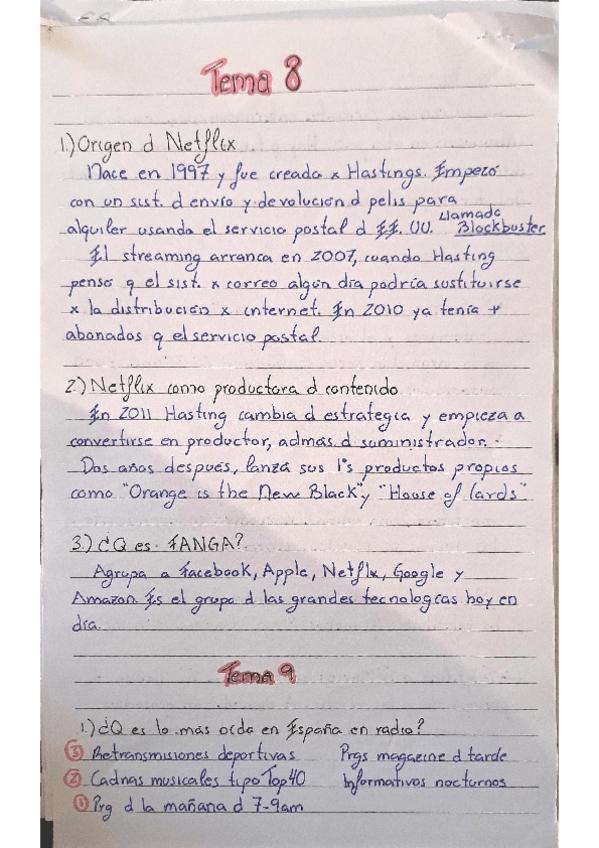 Tema 8
1.) Origen d Netflix
Nace en 1997 y fue creada x Hastings. Empezó
con un sist. d envío y devolución d pelis para
alquiler usando el servicio postal d EE. UU. llamado Blockbuster
El streaming arranca en 2007, cuando Hasting
pensó q el sist. x correo algún día podría sustituirse
x la distribución x internet. En 2010 ya tenía +
abonados q el servicio postal.
2.) Netflix como productora d contenido
En 2011 Hasting cambia d estrategia y empieza a
convertirse en productor, admás d suministrador.
Dos años después, lanza sus 1ºs productos propios
como "Orange is the New Black" y "House of Cards"
3.) ¿Q es FANGA?
Agrupa a Facebook, Apple, Netflx, Google y
Amazon. Es el grupo d las grandes tecnologías hoy en
día.
Tema 9
1.) ¿Q es lo más oído en España en radio?
③ Retransmisiones deportivas Prgs magazine d tarde
② Cadnas musicales tipo Top 40 Informativos nocturnos
① Prg d la mañana d 7-9am